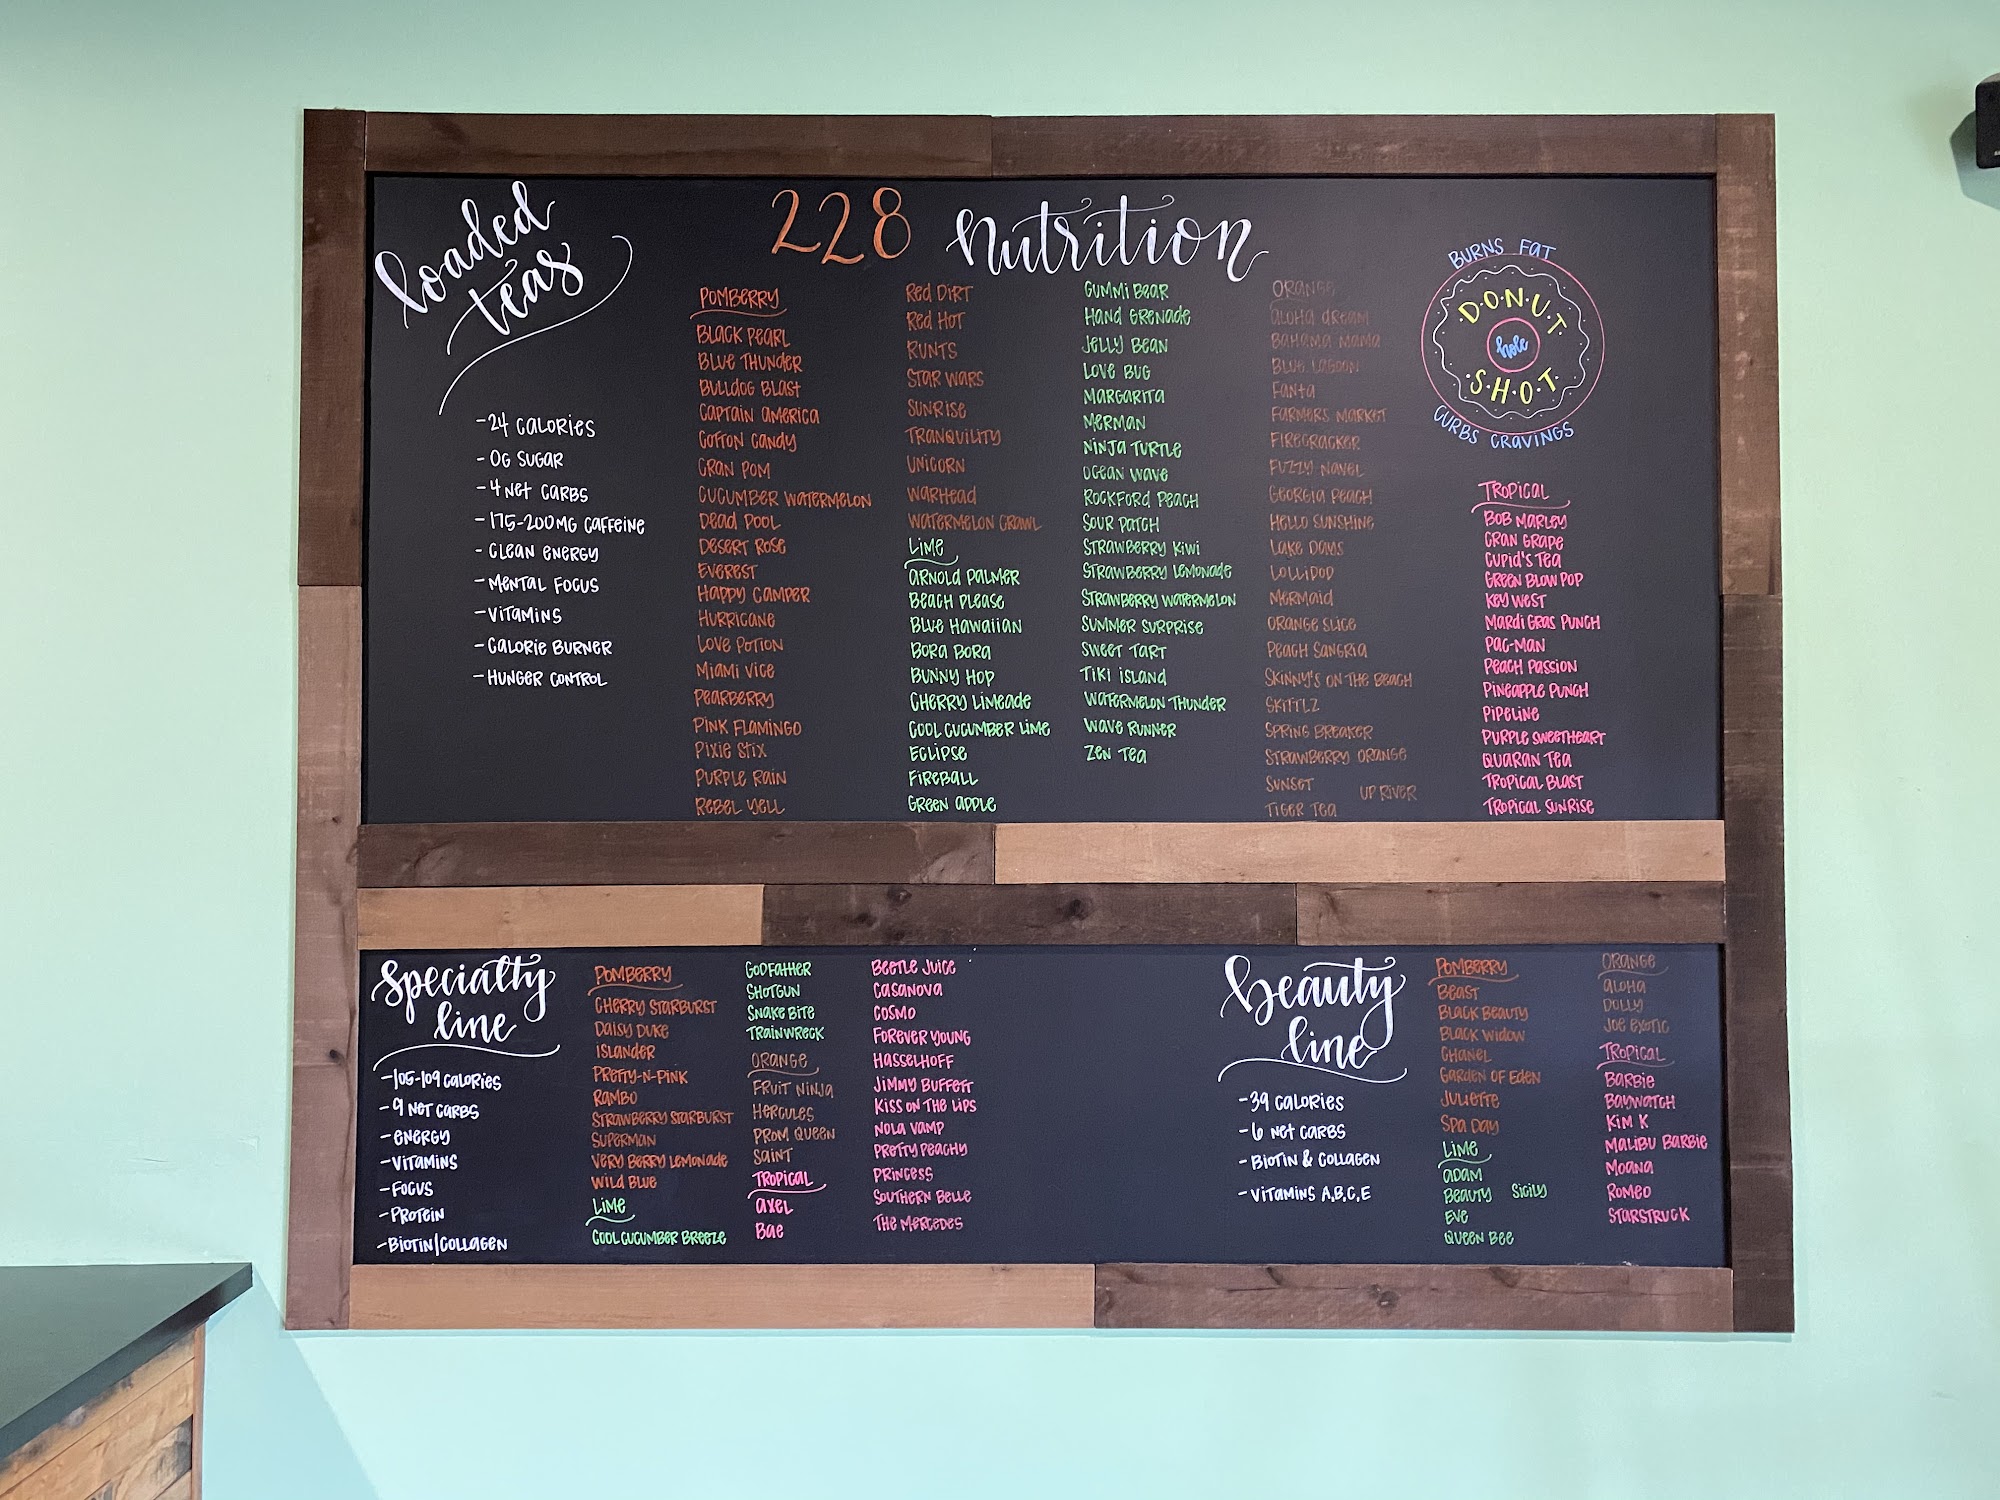 Loaded
teas
-24 CALORIES
-0G SUGAR
-4 NET CARBS
-175-200MG CAFFEINE
-CLEAN ENERGY
-MENTAL FOCUS
-VITAMINS
-CALORIE BURNER
-HUNGER CONTROL
228 Nutrition
POMBERRY
BLACK PEARL
BLUE THUNDER
BULLDOG BLAST
CAPTAIN AMERICA
COTTON CANDY
CRAN POM
CUCUMBER WATERMELON
DEAD POOL
DESERT ROSE
EVEREST
HAPPY CAMPER
HURRICANE
LOVE POTION
MIAMI VICE
PEARBERRY
PINK FLAMINGO
PIXIE STIX
PURPLE RAIN
REBEL YELL
RED DIRT
RED HOT
RUNTS
STAR WARS
SUNRISE
TRANQUILITY
UNICORN
WARHEAD
WATERMELON CRAWL
LIME
ARNOLD PALMER
BEACH PLEASE
BLUE HAWAIIAN
BORA BORA
BUNNY HOP
CHERRY LIMEADE
COOL CUCUMBER LIME
ECLIPSE
FIREBALL
GREEN APPLE
GUMMI BEAR
HAND GRENADE
JELLY BEAN
LOVE BUG
MARGARITA
MERMAN
NINJA TURTLE
OCEAN WAVE
ROCKFORD PEACH
SOUR PATCH
STRAWBERRY KIWI
STRAWBERRY LEMONADE
STRAWBERRY WATERMELON
SUMMER SURPRISE
SWEET TART
TIKI ISLAND
WATERMELON THUNDER
WAVE RUNNER
ZEN TEA
ORANGE
ALOHA DREAM
BAHAMA MAMA
BLUE LAGOON
FANTA
FARMERS MARKET
FIRECRACKER
FUZZY NAVEL
GEORGIA PEACH
HELLO SUNSHINE
LAKE DAYS
LOLLIPOP
MERMAID
ORANGE SLICE
PEACH SANGRIA
SKINNY'S ON THE BEACH
SKITTLZ
SPRING BREAKER
STRAWBERRY ORANGE
SUNSET
UP RIVER
TIGER TEA
BURNS FAT
D·O·N·U·T
hole
S·H·O·T
CURBS CRAVINGS
TROPICAL
BOB MARLEY
CRAN GRAPE
CUPID'S TEA
GREEN BLOW POP
KEY WEST
MARDI GRAS PUNCH
PAC-MAN
PEACH PASSION
PINEAPPLE PUNCH
PIPELINE
PURPLE SWEETHEART
QUARAN TEA
TROPICAL BLAST
TROPICAL SUNRISE
Specialty
line
-105-109 CALORIES
-9 NET CARBS
-ENERGY
-VITAMINS
-FOCUS
-PROTEIN
-BIOTIN/COLLAGEN
POMBERRY
CHERRY STARBURST
DAISY DUKE
ISLANDER
PRETTY-N-PINK
RAMBO
STRAWBERRY STARBURST
SUPERMAN
VERY BERRY LEMONADE
WILD BLUE
LIME
COOL CUCUMBER BREEZE
GODFATHER
SHOTGUN
SNAKE BITE
TRAINWRECK
ORANGE
FRUIT NINJA
HERCULES
PROM QUEEN
SAINT
TROPICAL
AXEL
BAE
BEETLE JUICE
CASANOVA
COSMO
FOREVER YOUNG
HASSELHOFF
JIMMY BUFFETT
KISS ON THE LIPS
NOLA VAMP
PRETTY PEACHY
PRINCESS
SOUTHERN BELLE
THE MERCEDES
Beauty
line
-39 CALORIES
-6 NET CARBS
-BIOTIN & COLLAGEN
-VITAMINS A,B,C,E
POMBERRY
BEAST
BLACK BEAUTY
BLACK WIDOW
CHANEL
GARDEN OF EDEN
JULIETTE
SPA DAY
LIME
ADAM
BEAUTY SICILY
EVE
QUEEN BEE
ORANGE
ALOHA
DOLLY
JOE EXOTIC
TROPICAL
BARBIE
BAYWATCH
KIM K
MALIBU BARBIE
MOANA
ROMEO
STARSTRUCK